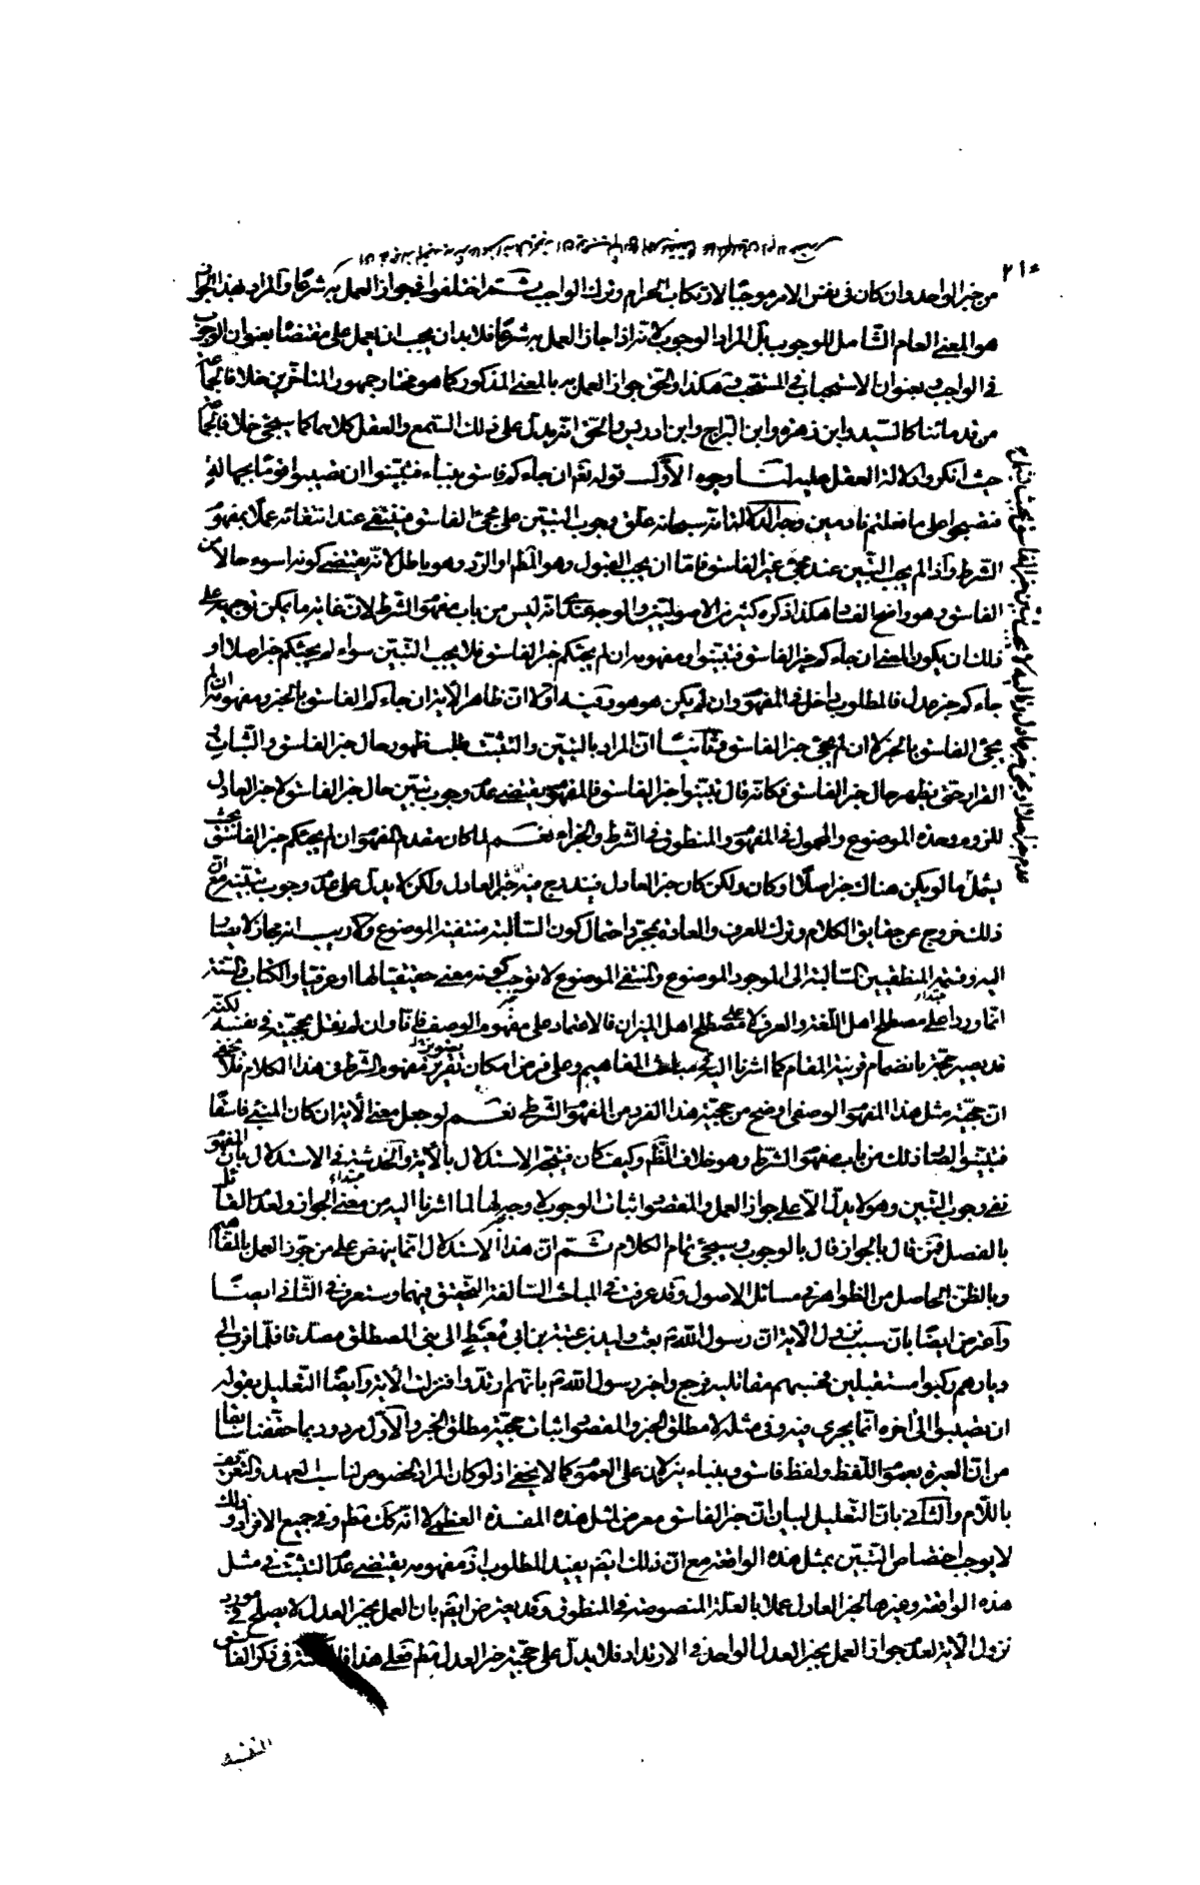 ٢١٠
من خبر الواحد وان كان فى نفس الامر موجبا لارتكاب الحرام وترك الواجب ثم اختلفوا فى جواز العمل به شرعا والمراد بهذا الجواز
هو المعنى العام الشامل للوجوب بل المراد الوجوب لانه اذا جاز العمل به شرعا فلا بد ان يجب ان يعمل على مقتضاه بعنوان الوجوب
فى الواجب وبعنوان الاستحباب فى المستحب وهكذا والحق جواز العمل به بالمعنى المذكور كما هو مختار جمهور المتاخرين خلافا لجماعة
من قدمائنا كالسيد وابن زهرة وابن البراج وابن ادريس والحق انه يدل على ذلك السمع والعقل كلاهما كما سيجئ خلافا لجماعة
حيث انكروا دلالة العقل عليه لنا وجوه الاول قوله تعم ان جاءكم فاسق بنباء فتبينوا ان تصيبوا قوما بجهالة
فتصبحوا على ما فعلتم نادمين وجه الدلالة انه سبحانه علق وجوب التبين على مجئ الفاسق فينتفى عند انتفائه عملا بمفهوم
الشرط واذا لم يجب التبين عند مجئ غير الفاسق فاما ان يجب القبول وهو المطم او الرد وهو باطل لانه يقتضى كونه اسوء حالا من
الفاسق وهو واضح الفساد هكذا ذكره كثير من الاصوليين والوجه عندى انه ليس من باب مفهوم الشرط لان غاية ما يمكن توجيهه على
ذلك ان يكون المعنى ان جاءكم خبر الفاسق فتبينوا ومفهومه ان لم يجئكم خبر الفاسق فلا يجب التبين سواء لم يجئكم خبر اصلا او
جاءكم خبر عدل فالمطلوب داخل فى المفهوم وان لم يكن هو هو وفيه اولا ان ظاهر الاية ان جاءكم الفاسق بالخبر ومفهومه ان لم
يجئ الفاسق بالخبر لا ان لم يجئ خبر الفاسق وثانيا ان المراد بالتبين والتثبت طلب ظهور حال خبر الفاسق والثبات و
القرار حتى يظهر حال خبر الفاسق فكانه قال تبينوا خبر الفاسق فالمفهوم يقتضى عدم وجوب تبين حال خبر الفاسق لا خبر العادل
للزوم وحدة الموضوع والمحمول فى المفهوم والمنطوق فى الشرط والجزاء نعم لما كان مقدم المفهوم ان لم يجئكم خبر الفاسق بحيث
يشمل ما لو يكن هناك خبر اصلا او كان ولكن كان خبر العادل فيندرج فيه خبر العادل ولكن لا يدل على عدم وجوب تبينه مع ان
ذلك خروج عن حقايق الكلام وترك للعرف والعادة بمجرد احتمال كون السالبة منتفية الموضوع ولا ريب انه مجاز لا يصار
اليه وقسمة المنطقيين السالبة الى الموجود الموضوع والمنتفى الموضوع لا توجب كونه معنى حقيقيا لها او عرفيا والكتاب والسنة
انما وردا على مصطلح اهل اللغة والعرف لا على مصطلح اهل الميزان فالاعتماد على مفهوم الوصف فانا وان لم نقل بحجيته فى نفسه لكنه
قد يصير حجة بانضمام قرينة المقام كما اشرنا اليه فى مباحث المفاهيم وعلى فرض امكان تقرير مفهوم الشرط فى هذا الكلام فلا يخفى
ان حجية مثل هذا المفهوم الوصفى اوضح من حجية هذا الفرد من المفهوم الشرطى نعم لو جعل معنى الاية ان كان المنبئ فاسقا
فتبينوا لصار ذلك من باب مفهوم الشرط وهو خلاف الظم وكيف كان فيتجه الاستدلال بالاية والخدشة فى الاستدلال بان المفهوم
نفى وجوب التبين وهو لا يدل الا على جواز العمل والمقصود اثبات الوجوب لا وجه لها لما اشرنا اليه من معنى الجواز ولعدم القائل
بالفصل فمن قال بالجواز قال بالوجوب وسيجئ تمام الكلام ثم ان هذا الاستدلال انما ينهض على من جوز العمل بالمفاهيم
وبالظن الحاصل من الظواهر فى مسائل الاصول وقد عرفت فى المباحث السالفة التحقيق فيهما وستعرف فى الثانى ايضا
واعترض ايضا بان سبب نزول الاية ان رسول الله ص بعث وليد بن عتبة بن ابى معيط الى بنى المصطلق مصدقا فلما قرب الى
ديارهم ركبوا مستقبلين فحسبهم مقاتليه فرجع واخبر رسول الله ص بانهم ارتدوا فنزلت الاية وايضا التعليل بقوله
ان تصيبوا الى اخره انما يجرى فيه وفى مثله لا مطلق الخبر والمقصود اثبات حجية مطلق الخبر والاول مردود بما حققناه سابقا
من ان العبرة بعموم اللفظ ولفظ فاسق وبنباء ينزلان على العموم كما لا يخفى اذ لو كان المراد الخصوص لناسب العهد والتعريف
باللام والثانى بان التعليل لبيان ان خبر الفاسق معرض لمثل هذه المفسدة العظيمة لا انه كك مطم وفى جميع الافراد وذلك
لا يوجب اختصاص التبين بمثل هذه الواقعة مع ان ذلك ايضم يفيد المطلوب اذ مفهومه يقتضى عدم التثبت فى مثل
هذه الواقعة وغيرها بخبر العادل عملا بالعلة المنصوصة فى المنطوق وقد يعترض ايضم بان العمل بخبر العدل لا يصلح فى مورد
نزول الاية لعدم جواز العمل بخبر العدل الواحد فى الارتداد فلا يدل على حجية خبر العدل مطم فعلى هذا فى ذكر الفاسق